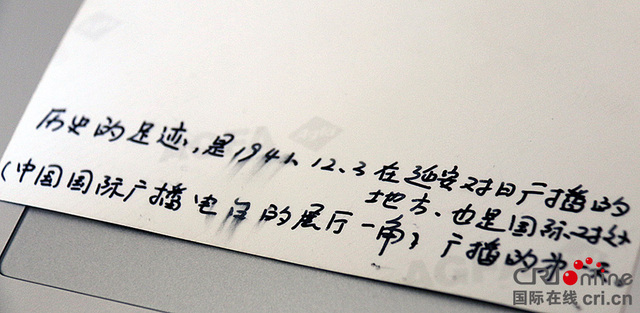 历史的足迹,是1941、12.3在延安对日广播的
地方.也是国际对外
(中国国际广播电台的展厅一角) 广播的第一天.
AGFA
Agfa
CRI Online
国际在线 cri.cn